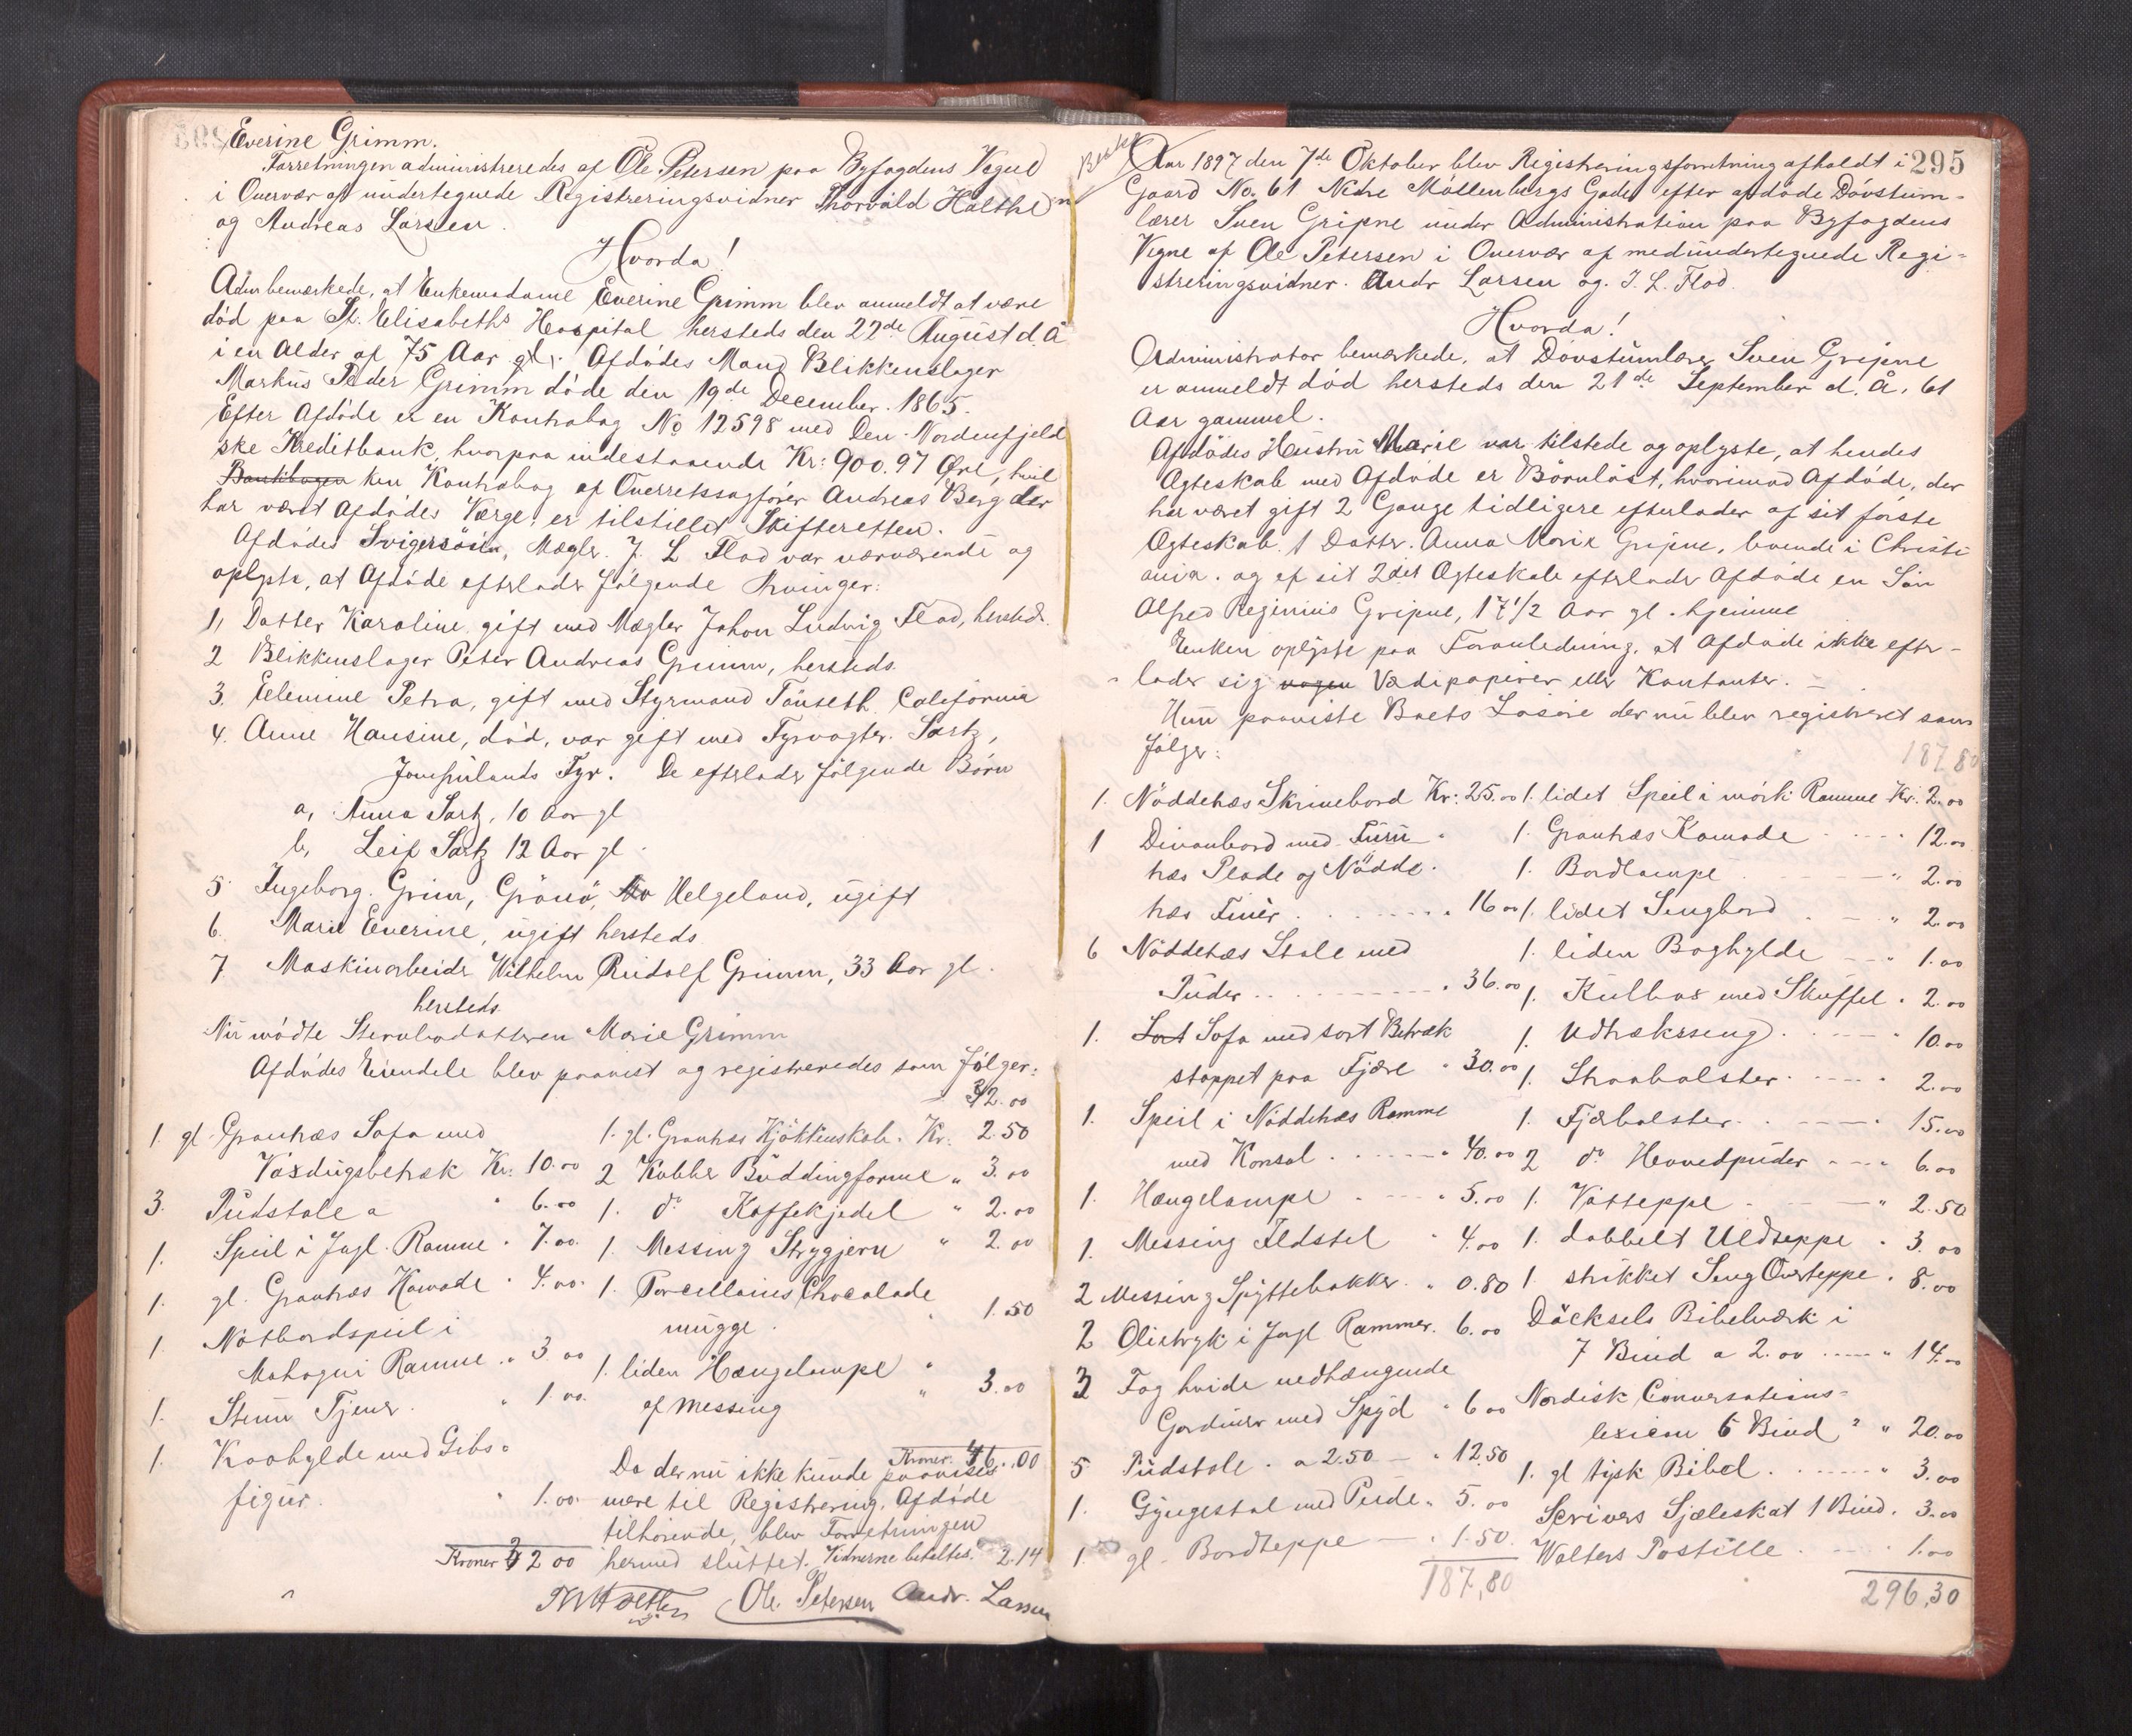 Everine Grimm.
Forretningen administreredes af Ole Petersen paa Byfogdens Vegne
i Overvær af undertegnede Registreringsvidner Thorvald Halthen
og Andreas Larsen.
Hvorda!
Adm bemærkede, at Enkemadame Everine Grimm blev anmeldt at være
død paa St. Elisabeths Hospital hersteds den 22de August d. A
i en Alder af 75 Aar gl. Afdødes Mand Blikkenslager
Markus Peder Grimm døde den 19de December 1865.
Efter Afdøde er en Kontrabog No 12598 med Den Nordenfjeld
ske Kreditbank, hvorpaa indestaaende Kr: 900.97 Øre, hvil
Bankbogen ken Kontrabog af Overretssagfører Andreas Berg der
har været Afdødes Værge, er tilstillet Skifteretten.
Afdødes Svigersøn, Mægler J. L Flod var nærværende og
oplyste, at Afdøde efterlader følgende Arvinger:
1, Datter Karoline gift med Mægler Johan Ludvig Flod, hersteds
2 Blikkenslager Peter Andreas Grimm, hersteds.
3. Elemine Petra, gift med Styrmand Tønseth California
4. Anne Hansine, død, var gift med Fyrvogter Sartz,
Jomfrulands Fyr. De efterlader følgende Børn
a, Anna Sartz, 10 Aar gl
b, Leif Sartz 12 Aar gl.
5 Ingeborg Grim, Grønø, Helgeland, ugift
6. Marie Everine, ugift hersteds
7 Maskinarbeider Wilhelm Rudolf Grimm, 33 Aar gl.
hersteds.
Nu mødte Stervbodatteren Marie Grimm
Afdødes Eiendele blev paavist og registreredes som følger:
32.00
1. gl. Grantræs Sofa med
Voxdugsbetræk Kr. 10.00
3. Pudstole a " 6.00
1. Speil i Jagl. Ramme " 7.00
1. gl. Grantræs Komode " 4.00
1. Natbordspeil i
Mahogni Ramme " 3.00
1. Stum Tjener " 1.00
1. Kroghylde med Gibs=
figur. " 1.00
Kroner 32 00
1. gl. Grantræs Kjøkkenskab. Kr. 2.50
2 Kobber Buddingforme " 3.00
1. do Kaffekjedel " 2.00
1. Messing Strygjern " 2.00
1. Porcellains Chocolade
mugge. " 1.50
1. liden Hængelampe "
af Messing " 3.00
Kroner 46.00
Da der nu ikke kunde paavises
mere til Registrering, Afdøde
tilhørende, blev Forretningen
hermed sluttet. Vidnerne betaltes 2.14
Ole Petersen Andr. Larsen
295
Aar 1897 den 7de Oktober blev Registreringsforretning afholdt i
Gaard No. 61 Nedre Møllenbergs Gade efter afdøde Døvstum=
lærer Sven Gripne under Administration paa Byfogdens
Vegne af Ole Petersen i Overvær af medundertegnede Regi=
streringsvidner. Andr Larsen og J. L. Flod.
Hvorda!
Administrator bemærkede, at Døvstumlærer Sven Gripne
er anmeldt død hersteds den 21de September d. A. 61
Aar gammel.
Afdødes Hustru Marie var tilstede og oplyste, at hendes
Ægteskab med Afdøde er Børnløst, hvorimod Afdøde, der
har været gift 2 Gange tidligere efterlader af sit første
Ægteskab 1 Datter Anna Marie Gripne, boende i Christi
ania. og af sit 2det Ægteskab efterlader Afdøde en Søn
Alfred Reginius Gripne, 17 1/2 Aar gl. hjemme
Enken oplyste paa Foranledning, at Afdøde ikke efter-
lader sig nogen Værdipapirer eller Kontanter. -
Hun paaviste Boets Løsøre der nu blev registreret som
følger:
187,80
1. Nøddetræs Skrivebord Kr: 25.00
1 Divanbord med Furu
træs Plade og Nødde.
træs Finér . . . 16.00
6 Nøddetræs Stole med
Puder . . . 36.00
1. Sort Sofa med sort Betræk
stoppet paa Fjære " 30.00
1. Speil i Nøddetræs Ramme
med Konsol . . . 40.00
1. Hængelampe . . . 5.00
1. Messing Ildstel " 4.00
2 Messing Spyttebakker " 0.80
2 Olietryk i Jagl Rammer. 6.00
3 Fag hvide nedhængende
Gardiner med Spyd " 6 00
5 Pudstole. a 2.50 - " 12.50
1. Gyngestol med Pude " 5.00
1. gl. Bordteppe - " 1.50
187,80
1. lidet Speil i mørk Ramme Kr. 2.00
1. Grantræs Komode . . . 12.00
1. Bordlampe . . . " 2.00
1. lidet Sengbord . . . " 2.00
1. liden Boghylde . . . " 1.00
1. Kulbox med Skuffel " 2.00
1. Udtrækseng . . . 10.00
1. Straabolster . . . 2.00
1. Fjærbolster . . . 15.00
2 do Hovedpuder . . . 6.00
1. Vatteppe . . . " 2.50
1. dobbelt Uldteppe " 3.00
1. strikket Seng Overteppe " 8.00
Däcksels Bibelværk i
7 Bind a 2.00 . . . " 14.00
Nordisk Conversations=
lexicon 6 Bind " " 20.00
1. gl tysk Bibel . . . " 3.00
Scrivers Sjæleskat 1 Bind. 3.00
Walters Postille . . . 1.00
296,30